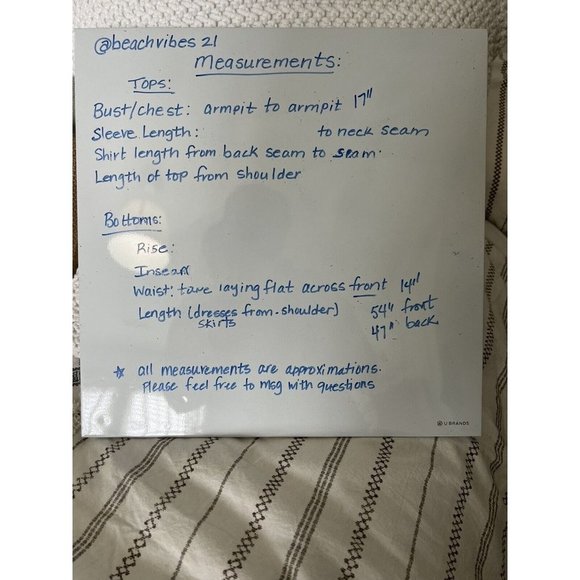 @beachvibes 21
Measurements:
TOPS:
Bust/chest: armpit to armpit 17"
Sleeve Length: to neck seam
Shirt length from back seam to seam.
Length of top from shoulder
Bottoms:
Rise:
Inseam
Waist: take laying flat across front 14"
Length (dresses from shoulder) 54" front
skirts 47" back
☆ all measurements are approximations.
Please feel free to msg with questions
U BRANDS